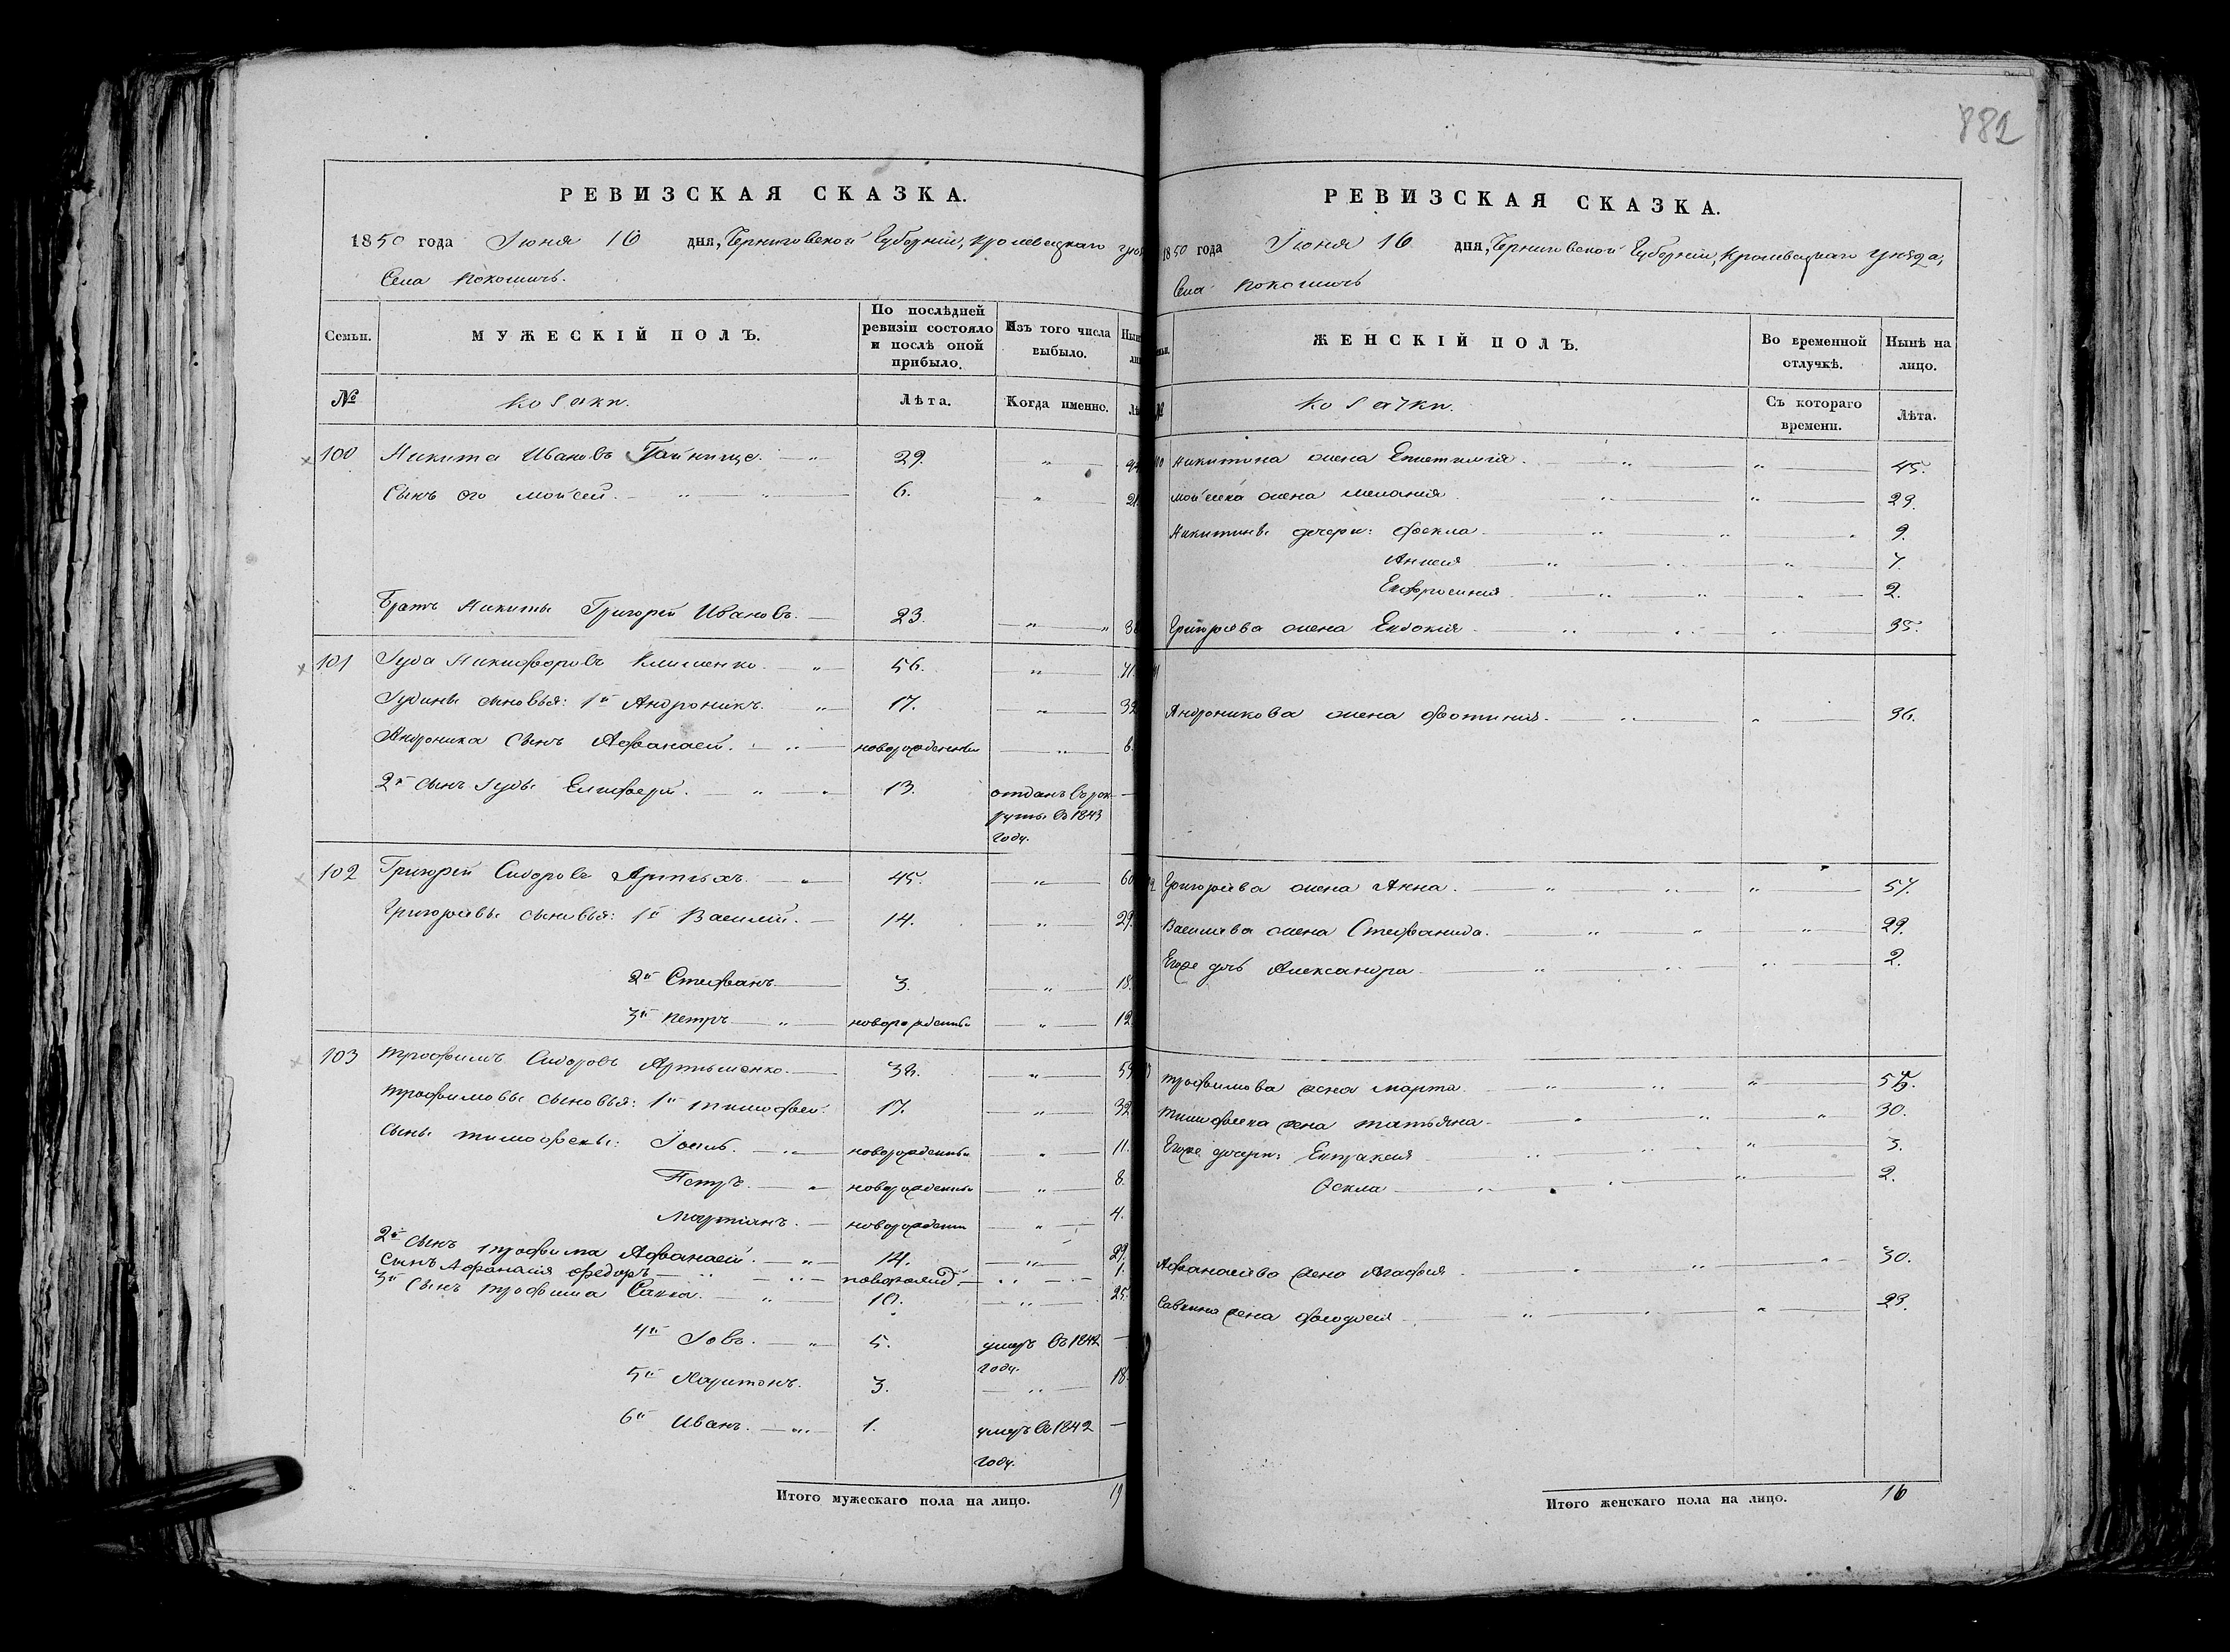 882
РЕВИЗСКАЯ СКАЗКА.
1850 года Іюня 16 дня, Черниговской Губерніи, Кролевецкаго уѣз
Села Покошичь.
Семьи. МУЖЕСКІЙ ПОЛЪ. По послѣдней ревизіи состояло и послѣ оной прибыло. Изъ того числа выбыло.
№ Козаки. Лѣта. Когда именно.
100 Никита Ивановъ 29.
Сынъ его Мойсей. 6. 21.
Братъ Никиты Григорей Ивановъ. 23.
101 Іуда Никифоровъ Клименко. 56. 71.
Іудины сыновья: 1й Андроникъ. 17. 32
Андроника сынъ Афанасей. новорожденный 6.
2й сынъ Іуды Елифѳерій. 13. отданъ въ рек
руты въ 1843
году.
102 Григорей Сидоровъ Артюхъ. 45. 60
Григорьевы сыновья: 1й Василій. 14. 29.
2й Стефанъ. 3. 18.
3й Петръ новорожденный 12
103 Трофимъ Сидоровъ Артюшенко. 38. 53
Трофимовы сыновья: 1й Тимофей. 17. 32
Сыны Тимофея: Іосиѳъ. новорожденный 11.
Петръ. новорожденный 8.
Мартинъ. новорожденный 4.
2й сынъ Трофима Афанасей. 14. 29.
Сынъ Афанасія Федоръ новорожд. 1.
3й сынъ Трофима Савка. 10. 25.
4й Іовъ. 5. умеръ въ 1842
году.
5й Харитонъ. 3. 18.
6й Иванъ. 1. умеръ въ 1842
году.
Итого мужескаго пола на лицо. 19
РЕВИЗСКАЯ СКАЗКА.
1850 года Іюня 16 дня, Черниговской Губерніи, Кролевецкаго уѣзда,
Села Покошичь
ЖЕНСКІЙ ПОЛЪ. Во временной отлучкѣ. Нынѣ на лицо.
№ Козачки. Съ котораго времени. Лѣта.
Никитина жена Епистимія. 45.
Мойсея жена Меланія 29.
Никитины дочери: Фекла 9.
Анисія 7.
Ефросинія 2.
Григорьева жена Евдокія 35.
Андроникова жена Фотинія. 36.
Григорьева жена Анна. 57.
Васильева жена Стефанида. 29.
Егоже дочь Александра 2.
Трофимова жена Марта.
Тимофея жена Татьяна 30.
Егоже дочери: Евпраксія 3.
Фекла 2.
Афанасьева жена Агафія 30.
Савкина жена Феодосія 23.
Итого женскаго пола на лицо. 16